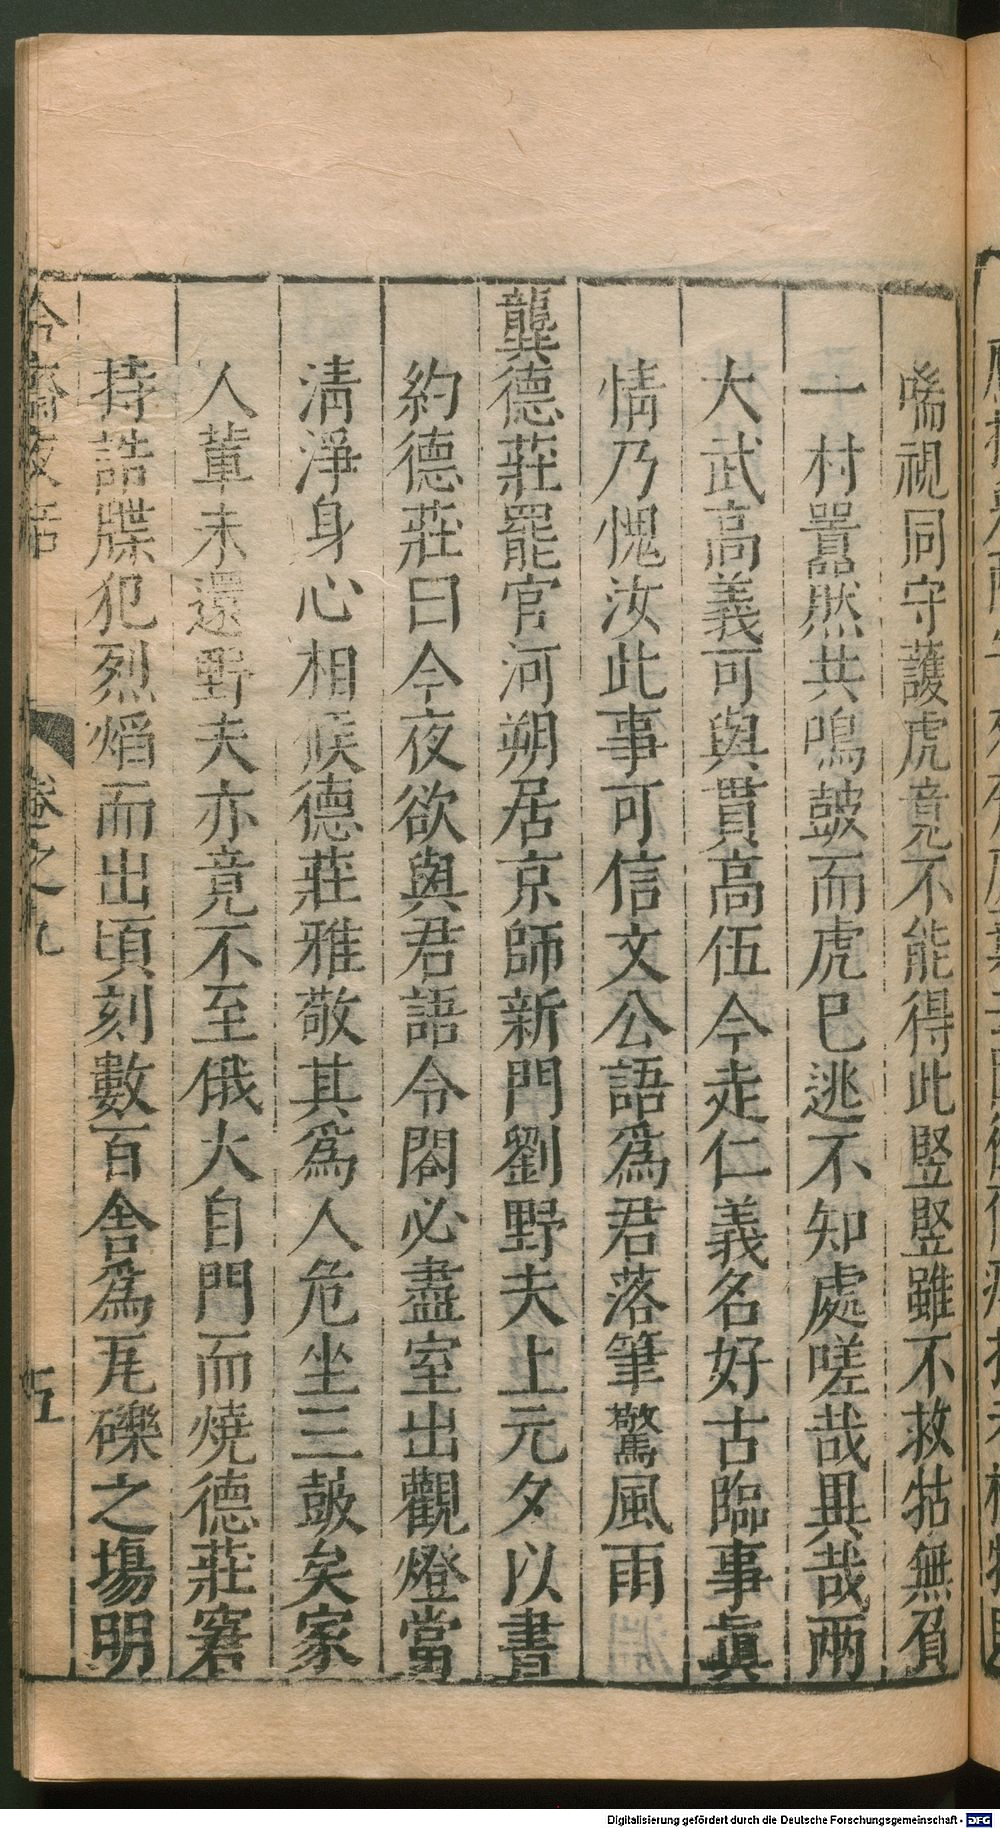 喘視同守護虎竟不能得此竪竪雖不救牯無負
一村嚚然共鳴鼓而虎巳逃不知處嗟哉異哉兩
大武高義可與貫高伍今走仁義名好古臨事眞
情乃愧汝此事可信文公語爲君落筆驚風雨
龔德莊罷官河朔居京師新門劉野夫上元夕以書
約德莊曰今夜欲與君語令閤必盡室出觀燈當
清淨身心相候德莊雅敬其爲人危坐三鼓矣家
人輩未還野夫亦竟不至俄大自門而燒德莊窘
持誥牒犯烈熖而出頃刻數百舍爲瓦礫之塲明
冷齋夜話 卷之九 五
Digitalisierung gefördert durch die Deutsche Forschungsgemeinschaft - DFG